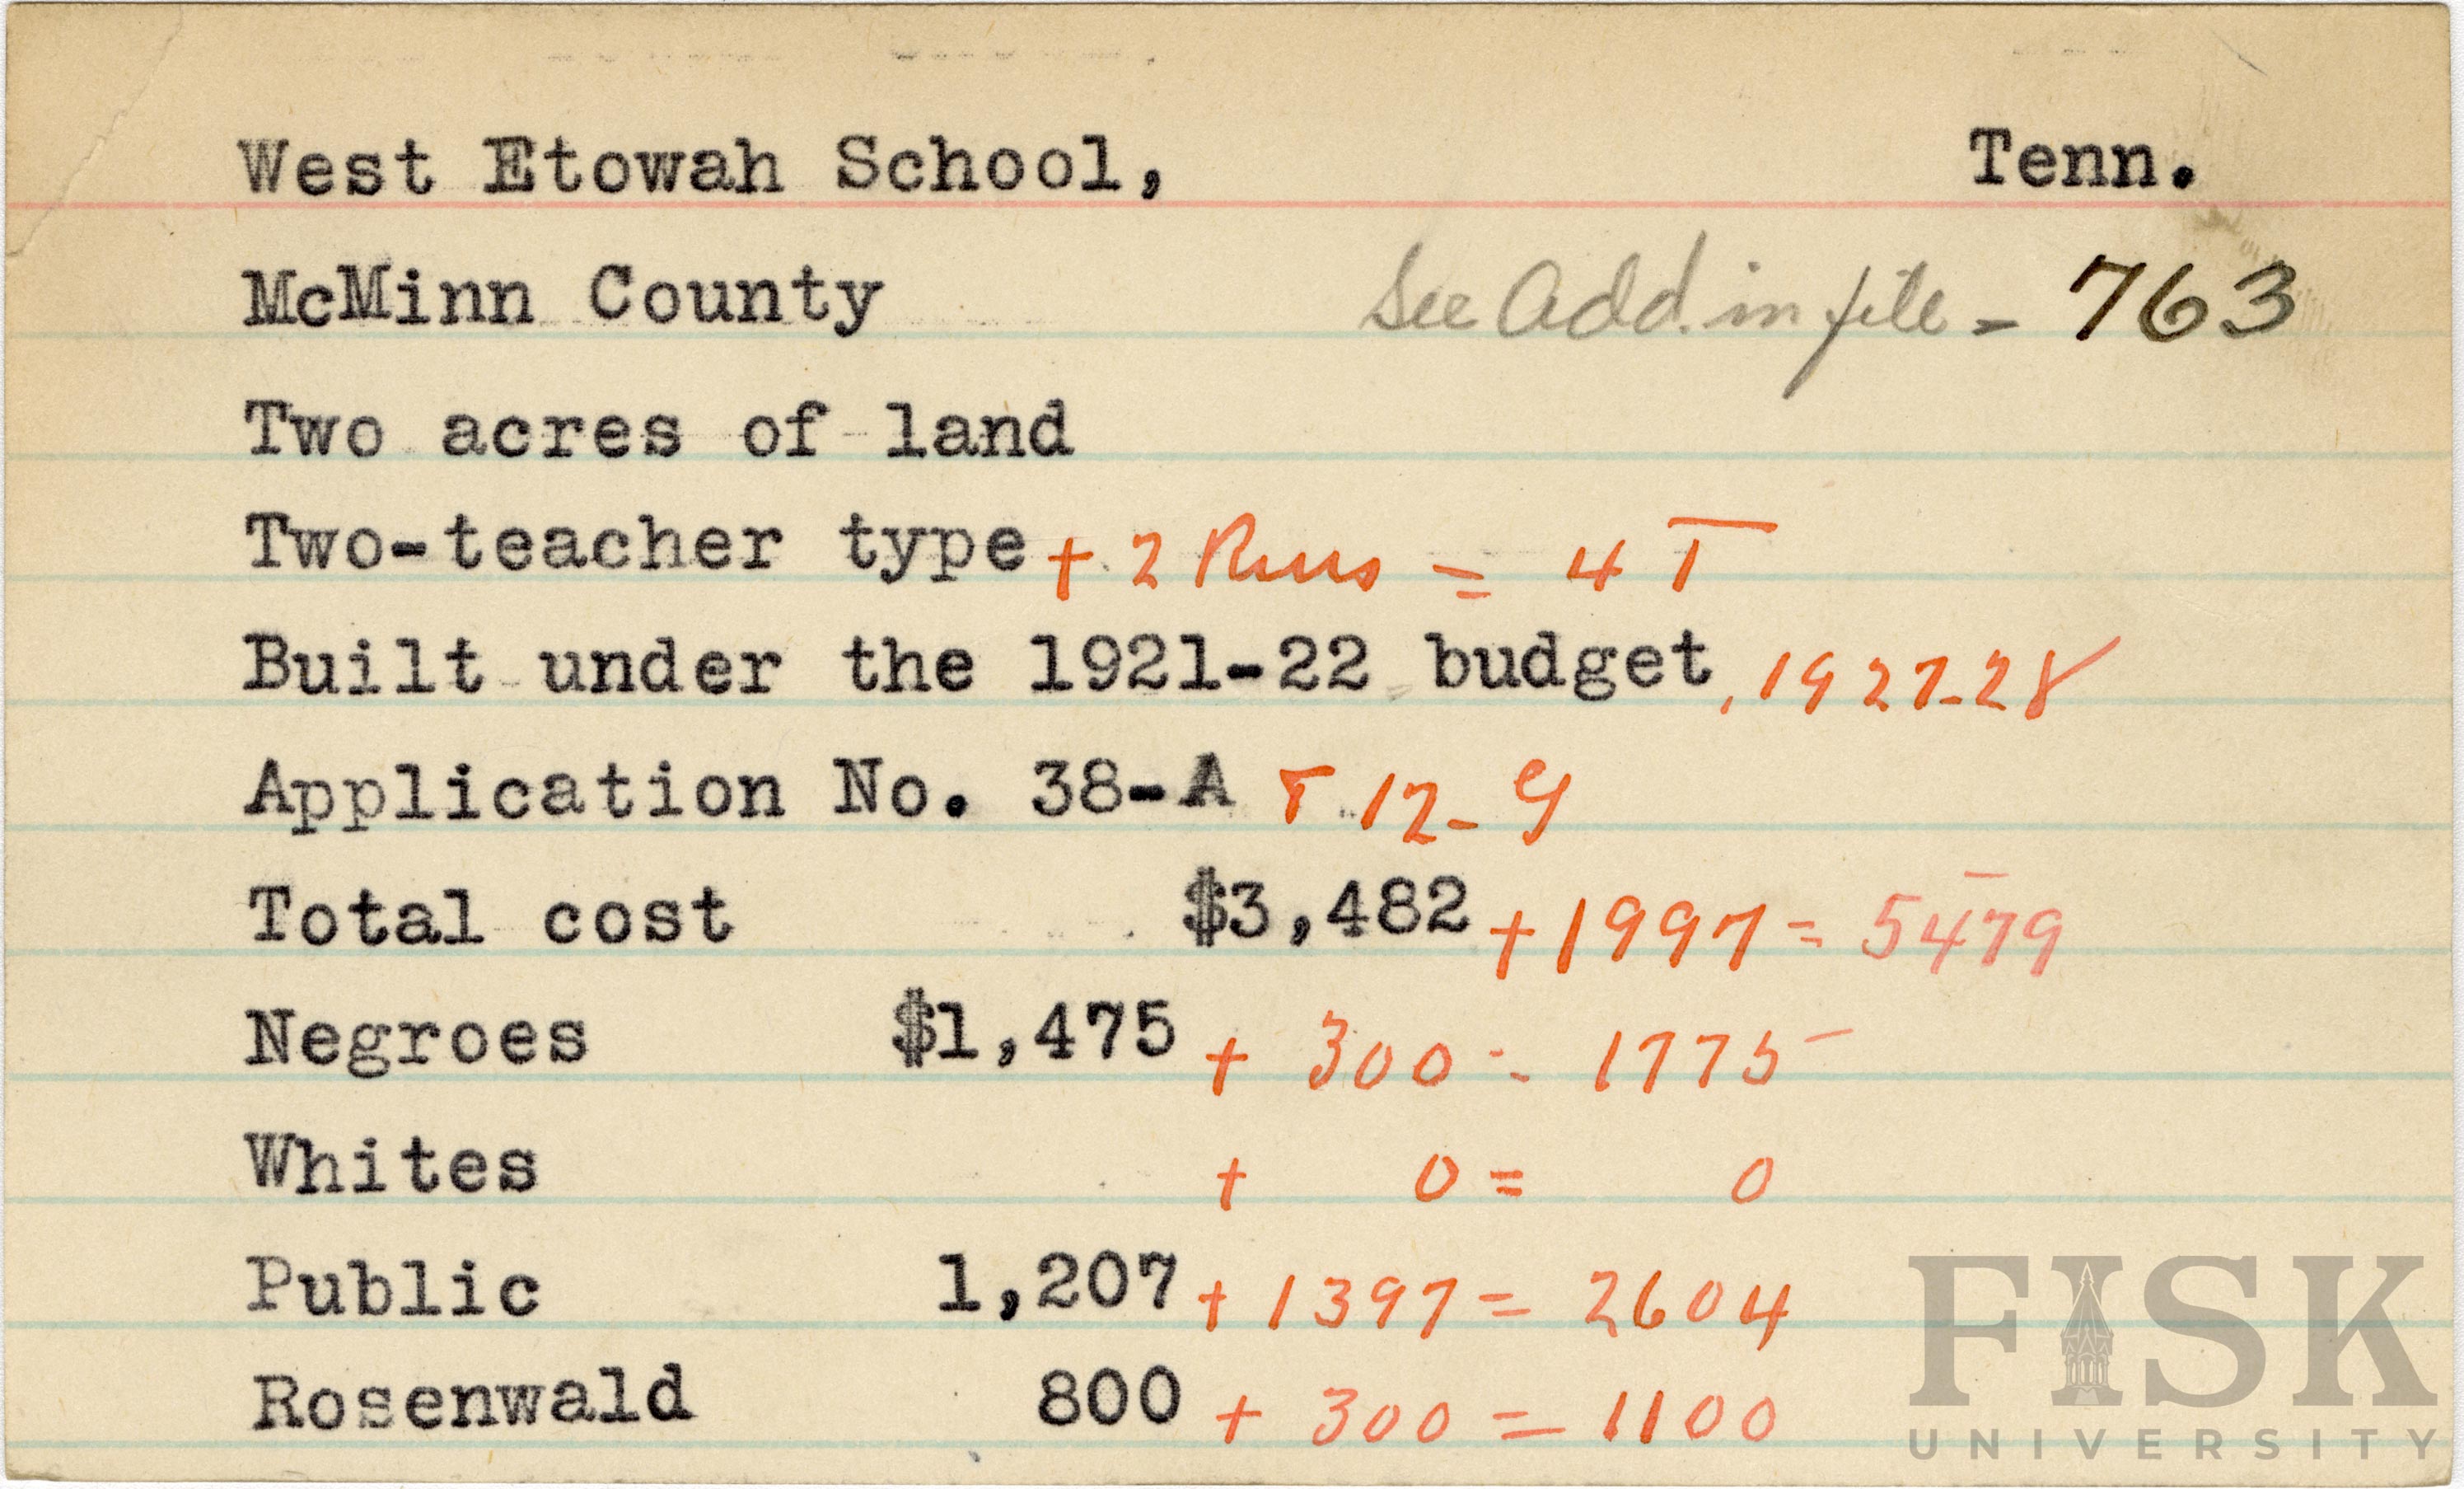 West Etowah School, Tenn.
McMinn County See Add. in file - 763
Two acres of land
Two-teacher type + 2 Rms = 4 T
Built under the 1921-22 budget, 1927-28
Application No. 38-A T 12-G
Total cost $3,482 + 1997 = 5479
Negroes $1,475 + 300 = 1775
Whites + 0 = 0
Public 1,207 + 1397 = 2604
Rosenwald 800 + 300 = 1100
FISK
UNIVERSITY